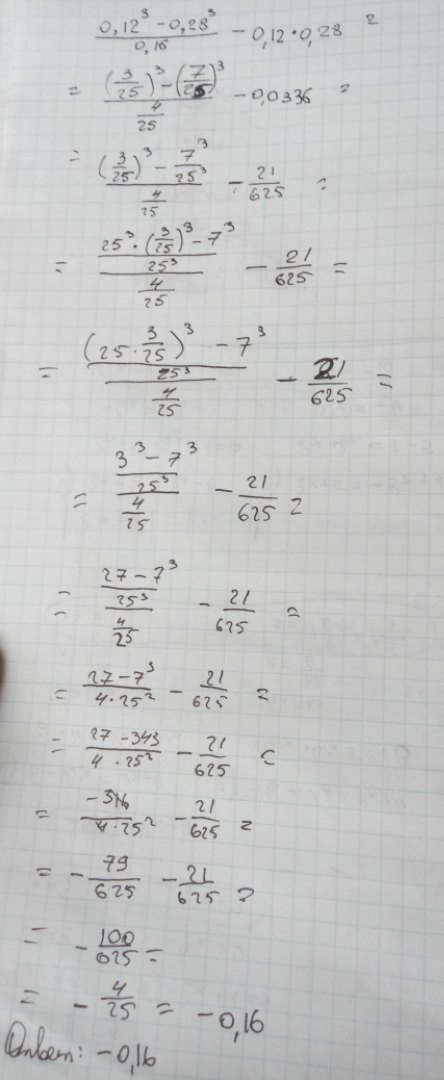 (0,12³ - 0,28³)/0,16 - 0,12·0,28 =
= ((3/25)³ - (7/25)³)/(4/25) - 0,0336 =
= ((3/25)³ - 7³/25³)/(4/25) - 21/625 =
= ((25³·(3/25)³ - 7³)/25³)/(4/25) - 21/625 =
= (((25·3/25)³ - 7³)/25³)/(4/25) - 21/625 =
= ((3³ - 7³)/25³)/(4/25) - 21/625 =
= ((27 - 7³)/25³)/(4/25) - 21/625 =
= (27 - 7³)/(4·25²) - 21/625 =
= (27 - 343)/(4·25²) - 21/625 =
= -316/(4·25²) - 21/625 =
= -79/625 - 21/625 =
= -100/625 =
= -4/25 = -0,16
Ответ: -0,16